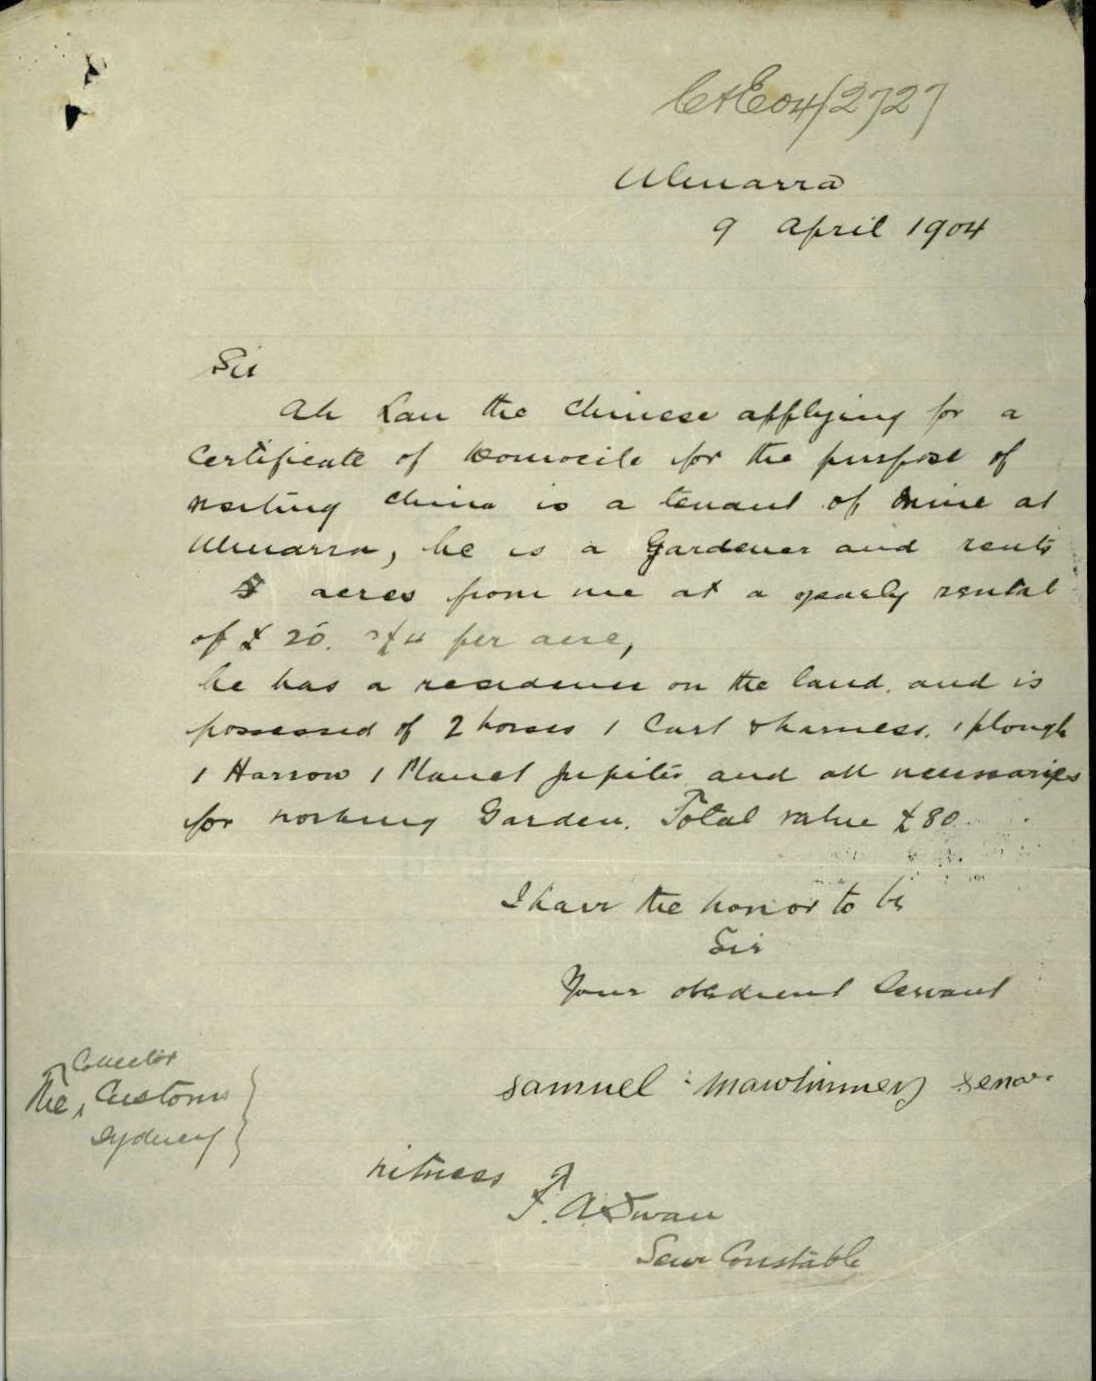 C&E04/2727
Ulmarra
9 April 1904
Sir
Ah Lau the Chinese applying for a
Certificate of Domocile for the purpose of
visiting China is a tenant of mine at
Ulmarra, he is a Gardener and rents
5 acres from me at a yearly rental
of £ 20. £4 per acre,
he has a residence on the land, and is
possessed of 2 horses 1 Cart & harness, 1 plough
1 Harrow 1 Planet Jupiter and all necessaries
for working Garden. Total value £80
I have the honor to be
Sir
Your obedient Servant
Samuel Mawhinney Senor.
Collector
The Customs
Sydney
Witness
F. A. Swan
Senr Constable